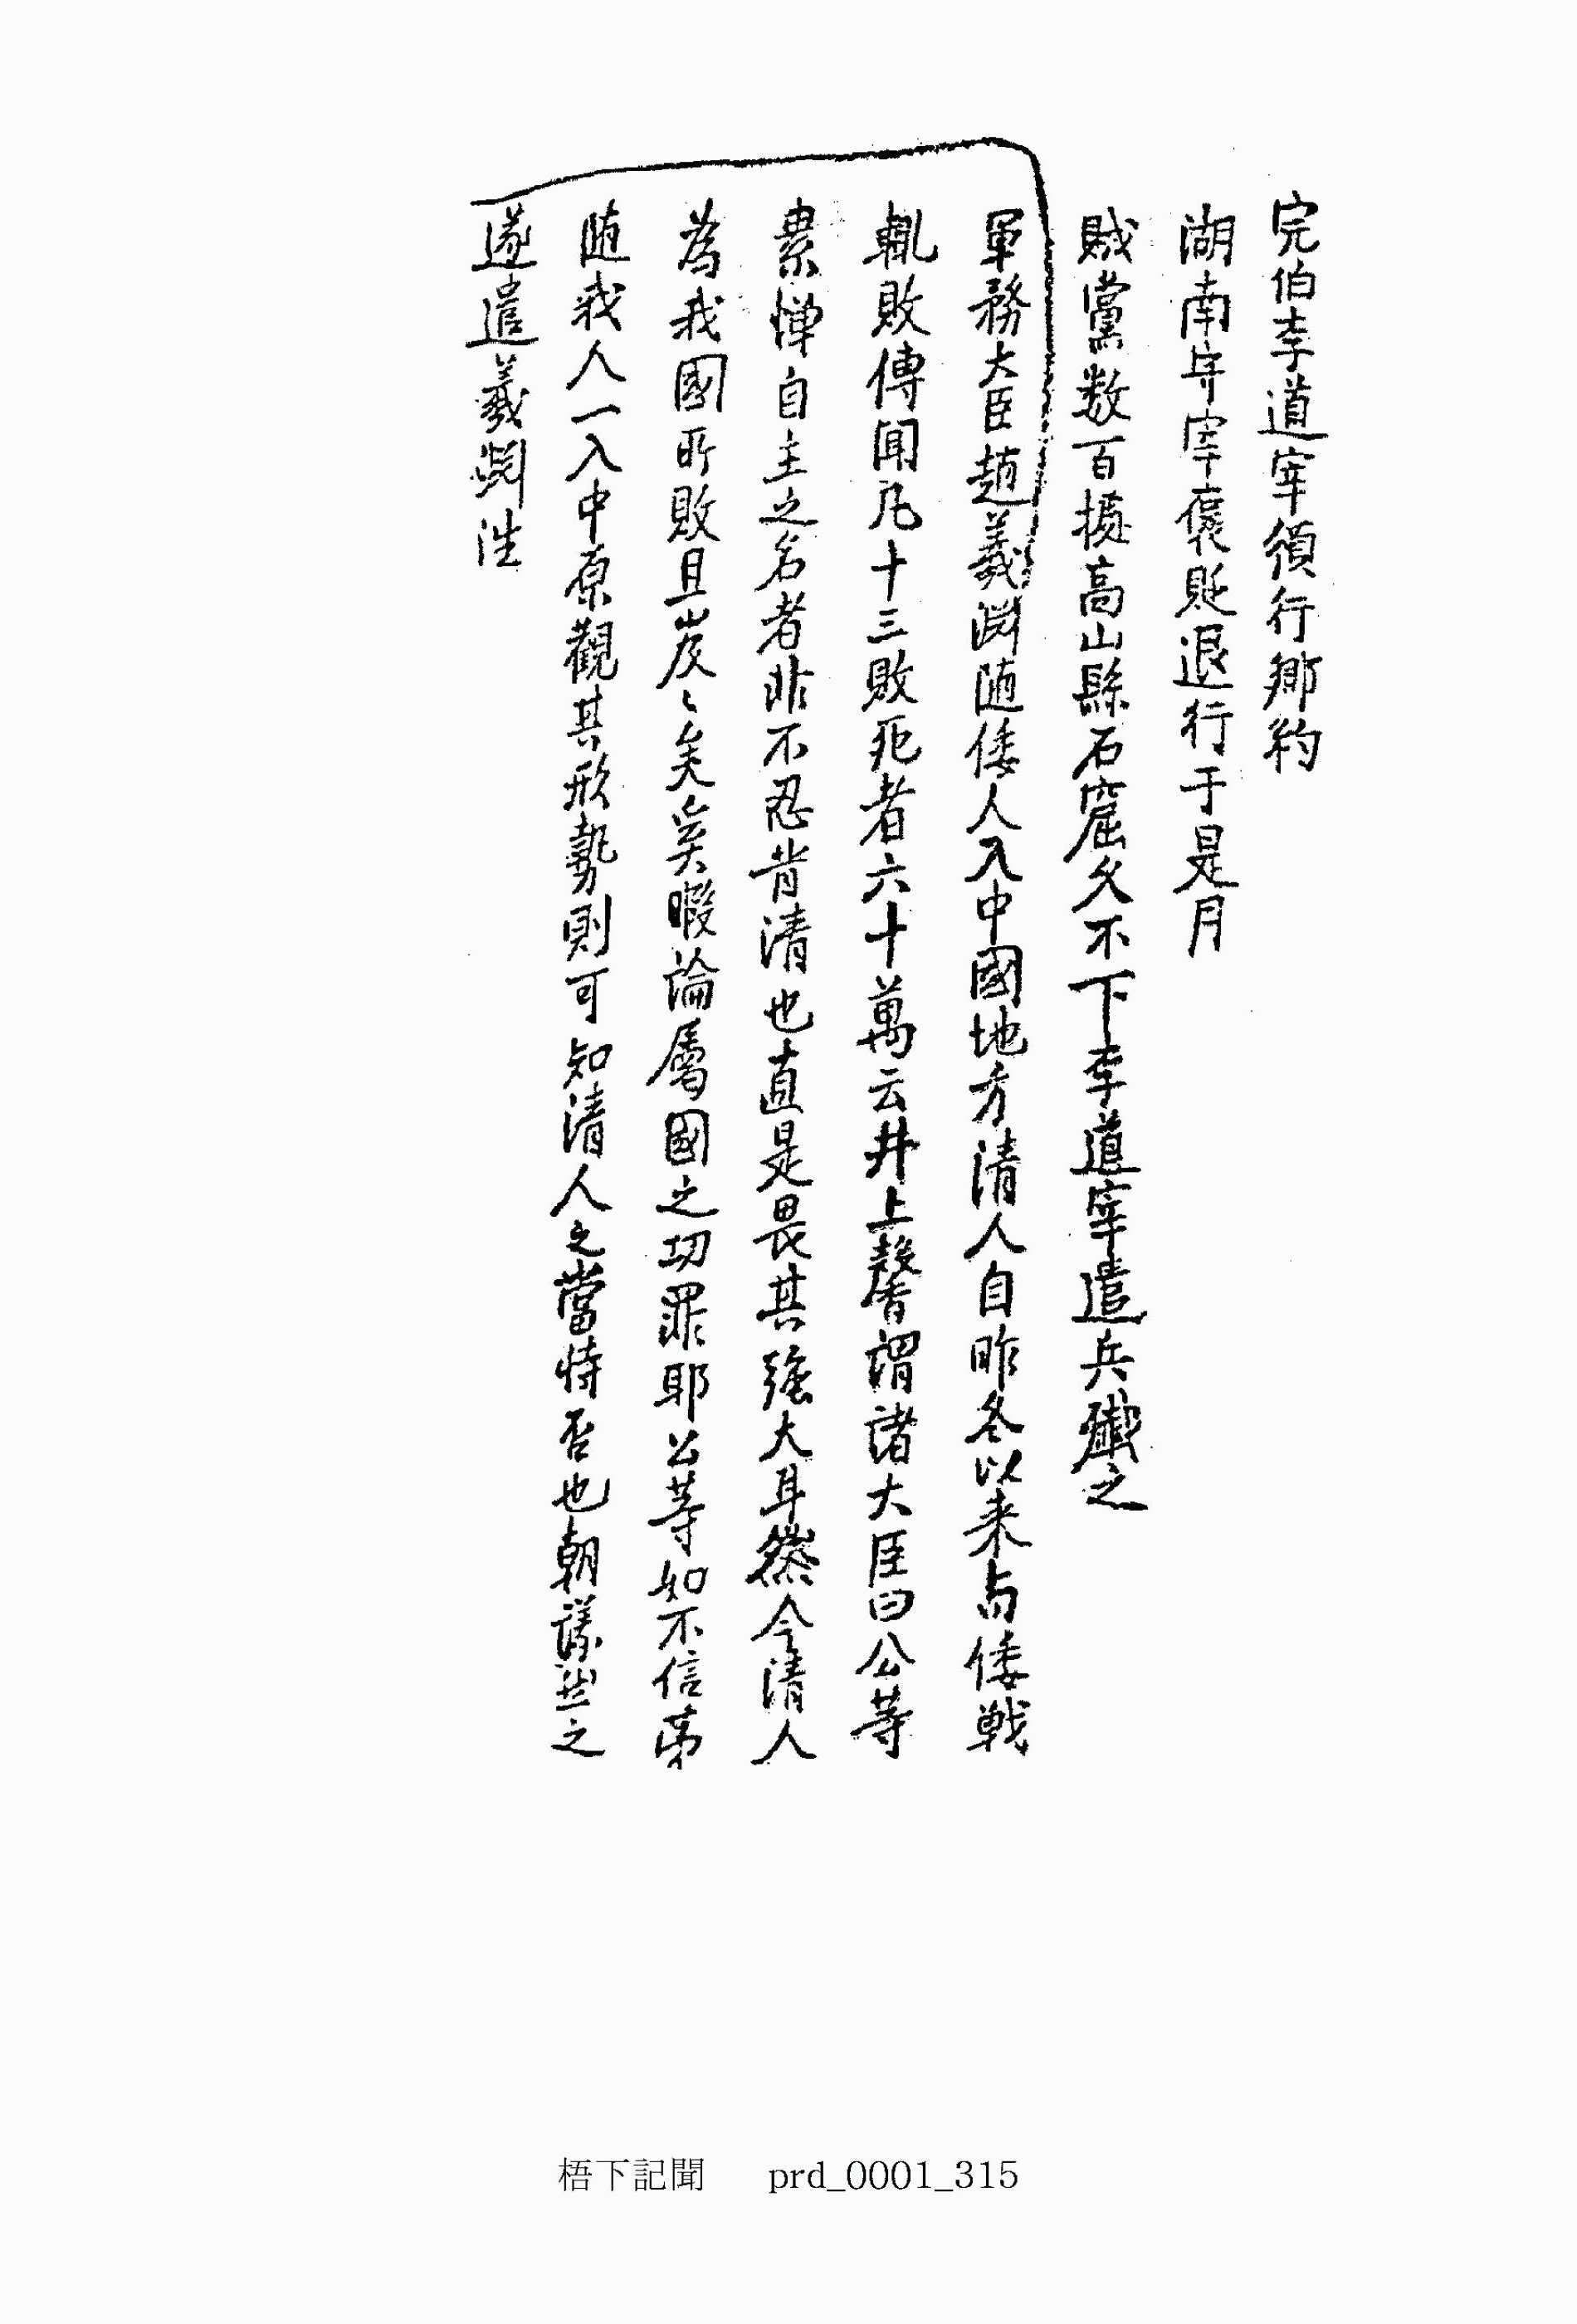 完伯李道宰頒行鄕約
湖南守宰褒貶退行于是月
賊黨数百據高山縣石窟久不下李道宰遣兵殱之
軍務大臣趙羲淵随倭人入中國地方清人自昨冬以来与倭戰
輒敗傳聞凡十三敗死者六十萬云井上馨謂諸大臣曰公等
素憚自主之名者非不忍背清也直是畏其强大耳然今清人
為我國所敗且岌〻矣奚暇論屬國之功罪耶公等如不信第
随我人一入中原觀其形勢則可知清人之當恃否也朝議然之
遂遣羲淵往
梧下記聞 prd_0001_315